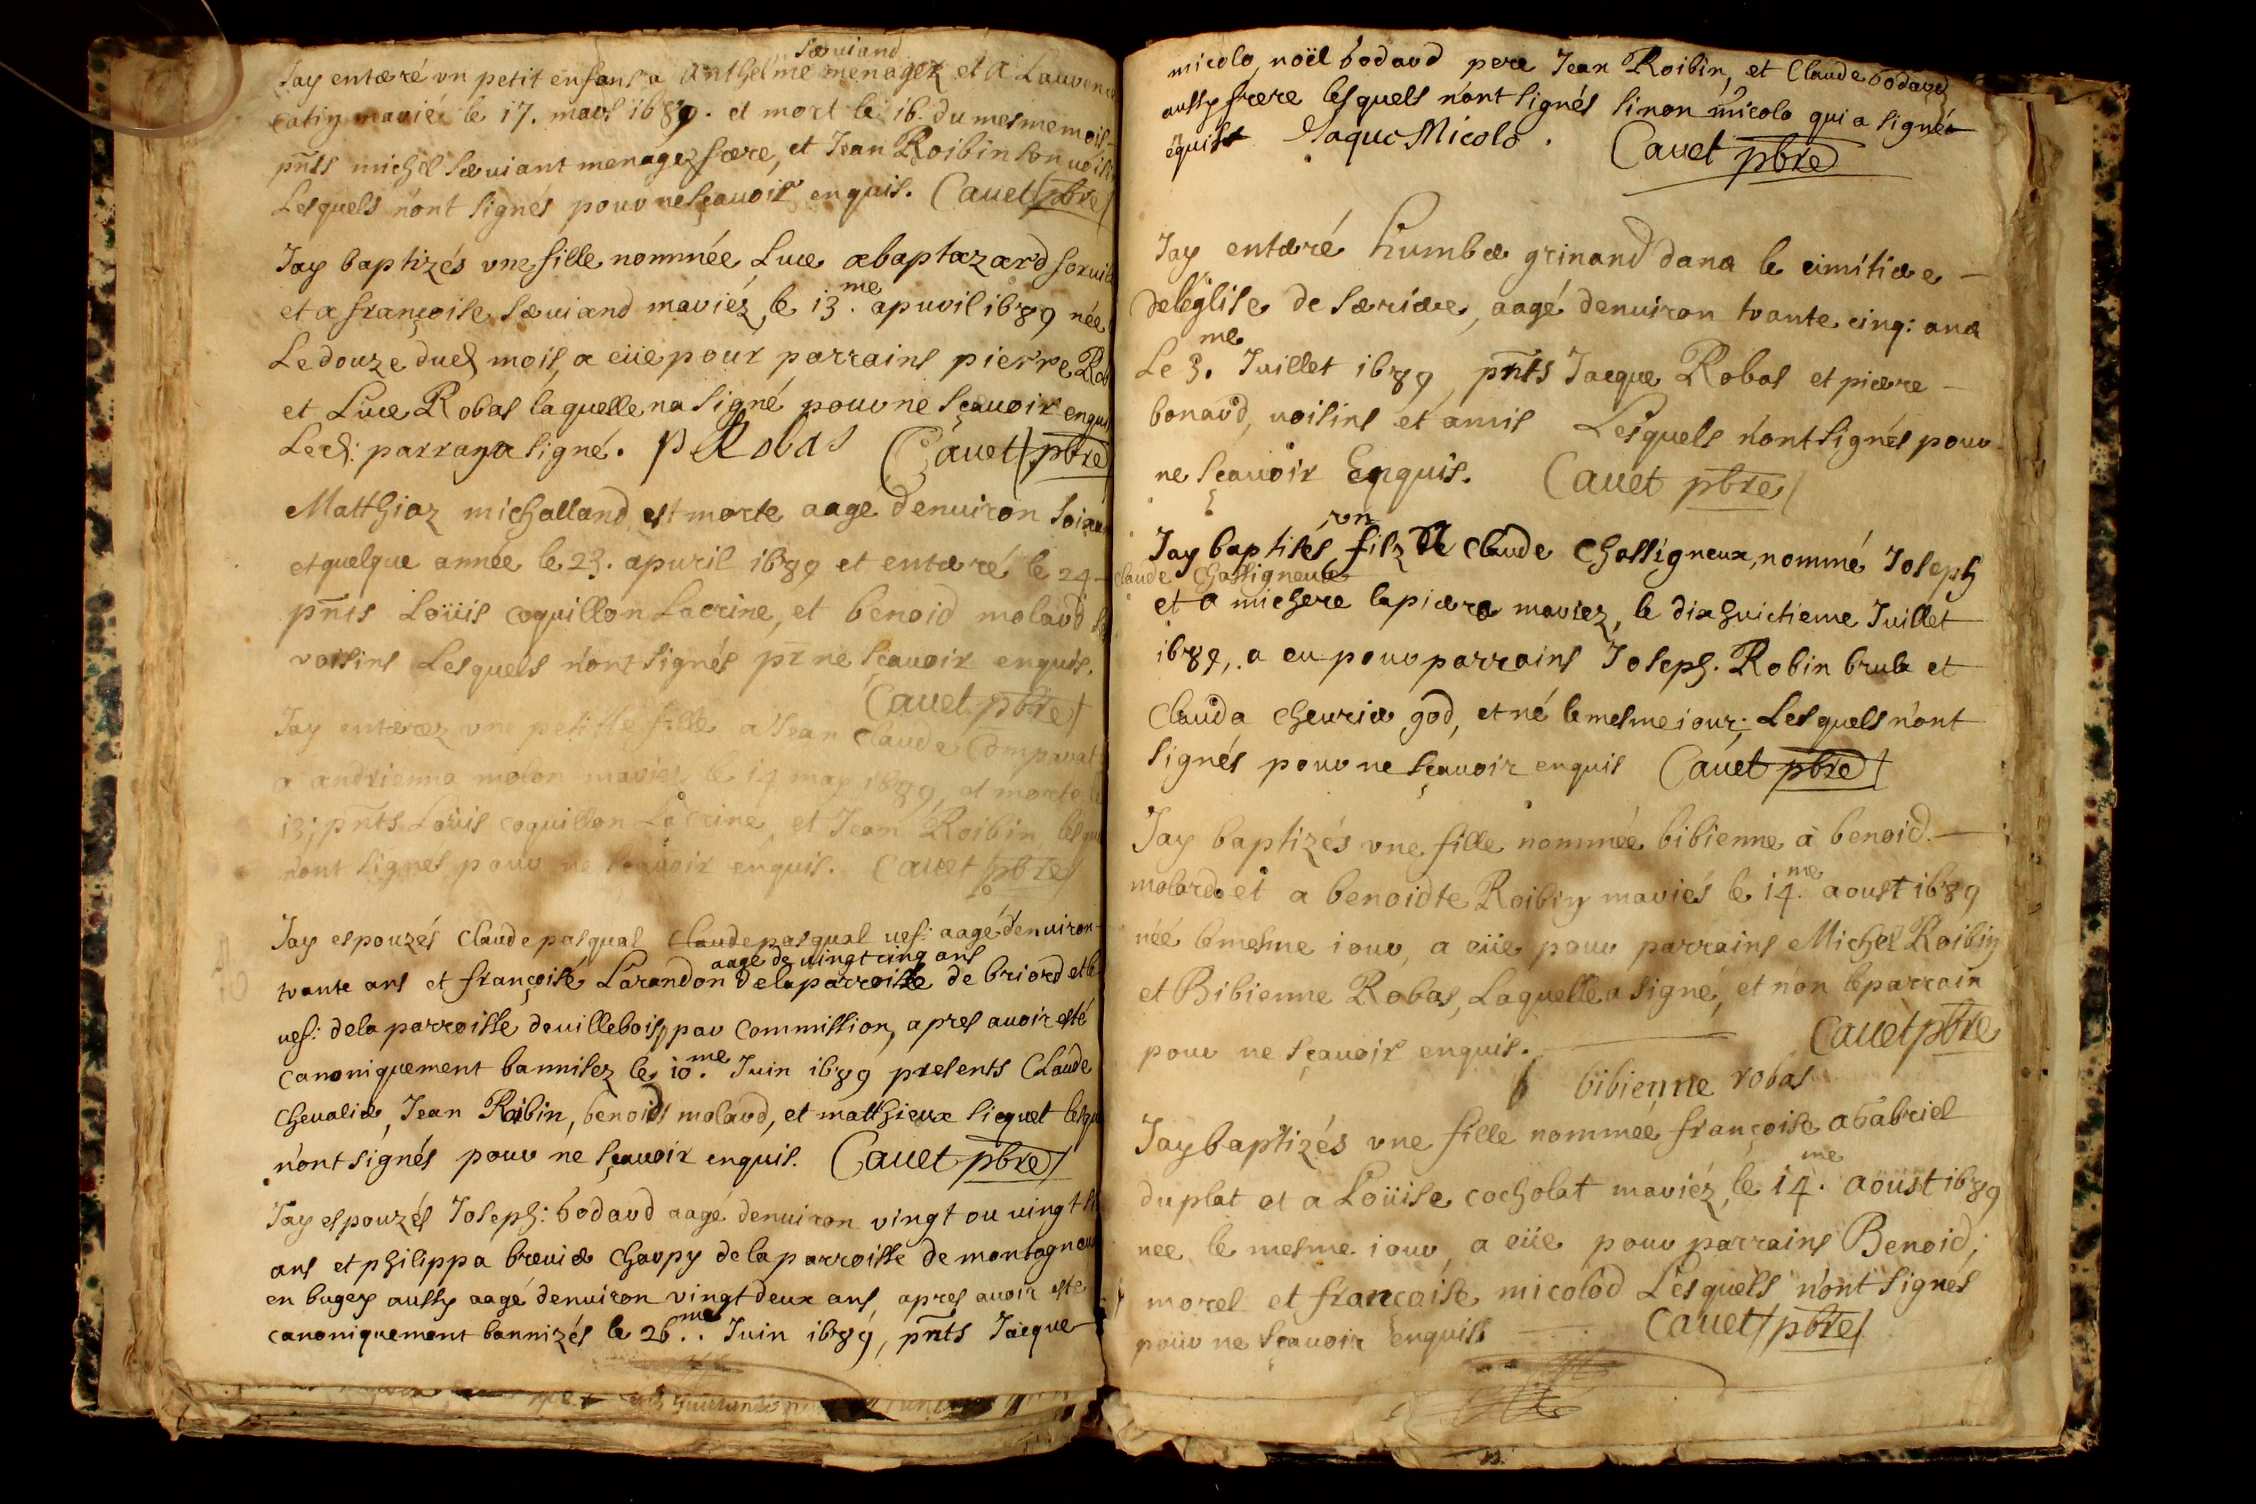 særuiand
Jay entæré vn petit enfans a anthelme menagez et a Laurence
catin mariés le 17. mars 1689. et mort le 16. du mesme mois
pñts michel særuiant menagez frere, et Jean Roibin son uoisin
Lesquels n'ont signés pour ne sçauoir enquis. Cauet pbre
Jay baptizés vne fille nommée Luce a baptazard
et a françoise særuiand mariéz le 13.me apuril 1689 née
Le douze dud mois, a eüe pour parrains pierre Rob
et Luce Robas laquelle na signé pour ne sçauoir enquis
Led: parrain a signé. p Robas Cauet pbre
Matthiaz michalland est morte aage denuiron soixan
et quelque année le 23. apuril 1689 et entæré le 24
pñts Loüis coquillon Lacrine, et benoid molard
voisins Lesquels n'ont signés pr ne sçauoir enquis.
Cauet pbre
Jay entærez vn petitte fille a Jean Claude Comparat
a andrienna molon mariez le 14 may 1689, et morte le
13; pñts Loüis coquillon Lacrine, et Jean Roibin lesque
n'ont signes pour ne sçauoir enquis. Cauet pbre
Jay espouzés Claude pasqual claude pasqual uef: aagé denuiron
aage de uingt cinq ans
trante ans et françoise Larandon de la parroisse de briord et le
uef: de la parroisse de uillebois, par Commission, apres auoir esté
canoniquement bannisez le 10.me Juin 1689 presents Claude
cheualiæ, Jean Roibin, benoid molard, et matthieux sicquet lesqu
n'ont signés pour ne sçauoir enquis. Cauet pbre
Jay espouzés Joseph: bodard aagé denuiron vingt ou uingt
ans et philippa bræuiæ charpy de la parroisse de montagneux
en bugey aussy aagé denuiron vingt deux ans, apres auoir este
canoniquement bannizés le 26.me Juin 1689, pñts Jacque
micolo, noël bodard pere Jean Roibin, et Claude bodard
aussy frere lesquels n'ont signés sinon micolo qui a signés
equist Jaque Micolo. Cauet pbre
Jay entæré humbæ grinand dana le cimitiæe
de l'eglise de særiære, aagé denuiron trante cinq: ana
Le 3.me Juillet 1689 pñts Jacque Robas et piære
bonard, uoisins et amis Lesquels n'ont signés pour
ne sçauoir Enquis. Cauet pbre
vn
Jay baptisés filz de Claude Chassigneux, nommé Joseph
claude Chassigneux
et a michere lapiæra mariez, le dixhuictieme Juillet
1689, a eu pour parrains Joseph. Robin brula et
Clauda cheuriæ god, et né le mesme iour; Lesquels n'ont
signés pour ne sçauoir enquis Cauet pbre
Jay baptizés vne fille nommée bibienne à benoid
molard et a benoidte Roibin mariés le 14.me aoust 1689
néé le mesme iour, a eüe pour parrains Michel Roibin
et Bibienne Robas, Laquelle a signe, et non le parrain
pour ne sçauoir enquis. Cauet pbre
bibienne robas
Jay baptizés vne fille nommée françoise a Gabriel
duplat et a Loüise cocholat mariéz, le 14.me aoüst 1689
nee le mesme iour, a eüe pour parrains Benoid;
morel et françoise micolod Lesquels n'ont signés
pour ne sçauoir enquiss Cauet pbre